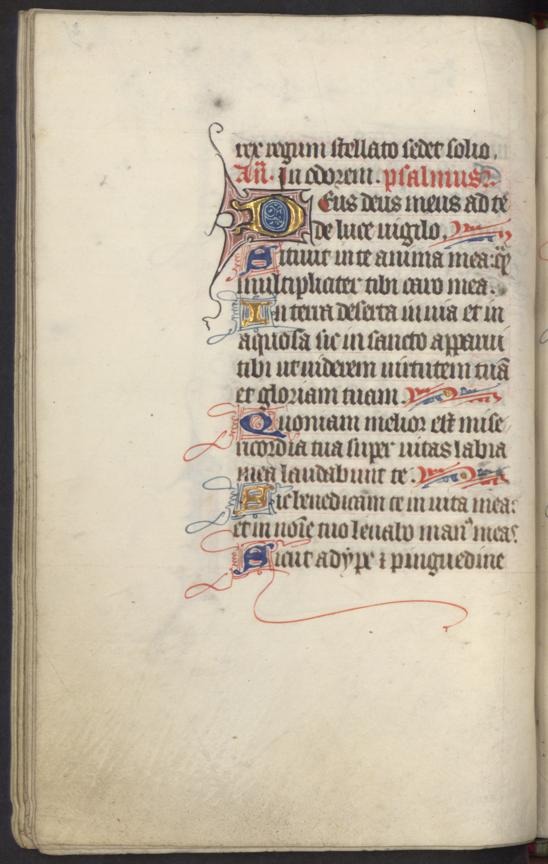 rex regum stellato sedet solio.
Añ. In odorem. psalmus.
Deus deus meus ad te
de luce uigilo.
Sitiuit in te anima mea: q̄
multipliciter tibi caro mea.
In terra deserta in uia et in
aquosa sic in sancto apparui
tibi ut uiderem uirtutem tuā
et gloriam tuam.
Quoniam melior est mise
ricordia tua super uitas labia
mea laudabunt te.
Sic benedicam te in uita mea:
et in noīe tuo leuabo man⁹ meas.
Sicut adype ⁊ pinguedine